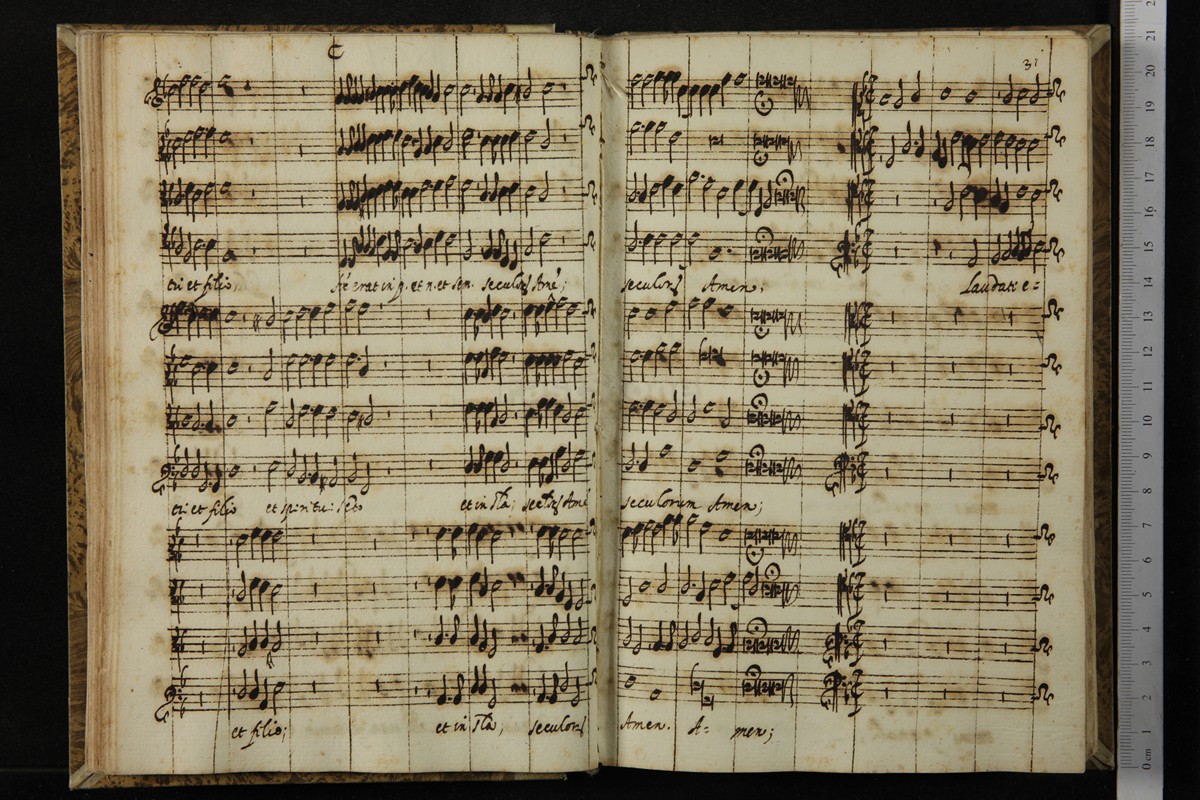 C
31
tri et filio, sic erat in p. et n. et sem. seculorũ Amẽ; seculorũ Amen; Laudate e=
tri et filio et spiritui sc̃to et in s̃cla; seculorũ Amẽ seculorum Amen;
et filio; et in s̃cla, seculorũ Amen. A= men;
0 cm 1 2 3 4 5 6 7 8 9 10 11 12 13 14 15 16 17 18 19 20 21